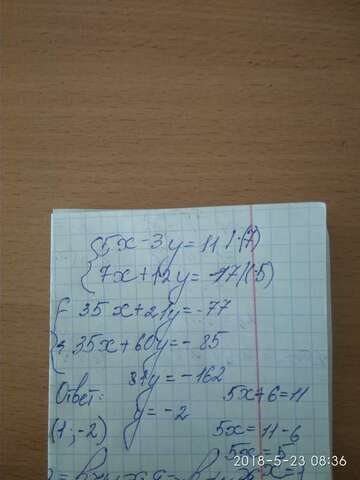 5x-3y=11 |·(-7)
7x+12y=-17|(·5)
35x+21y=-77
35x+60y=-85
81y=-162
y=-2
Ответ:
(1;-2)
5x+6=11
5x=11-6
5x=5
x=1
2018-5-23 08:36